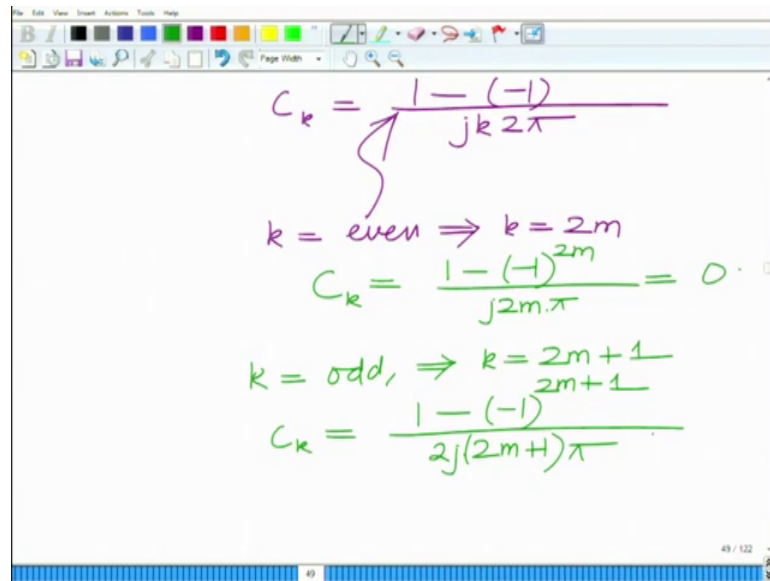 File Edit View Insert Actions Tools Help
B I
Page Width
C_k = \frac{1 - (-1)}{jk2\pi}
k = even ⇒ k = 2m
C_k = \frac{1 - (-1)^{2m}}{j2m.\pi} = 0.
k = odd, ⇒ k = 2m + 1
C_k = \frac{1 - (-1)^{2m+1}}{2j(2m+1)\pi}
49 / 122
49